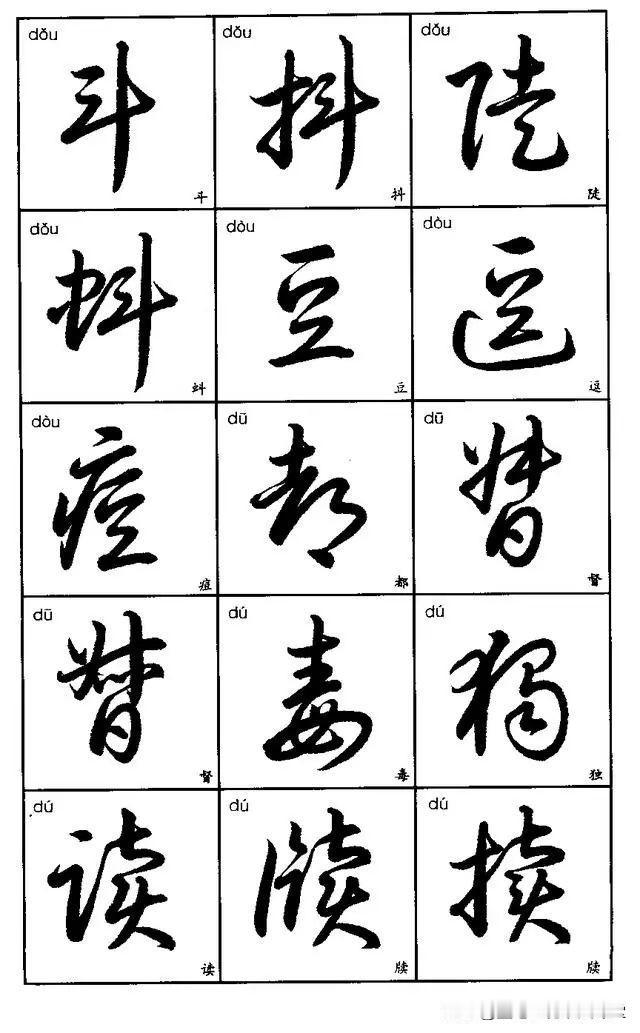 dǒu dǒu dǒu
斗 抖 陡
斗 抖 陡
dǒu dòu dòu
蚪 豆 逗
蚪 豆 逗
dòu dū dū
痘 都 督
痘 都 督
dū dú dú
督 毒 獨
督 毒 独
dú dú dú
读 牍
读 牍 牍